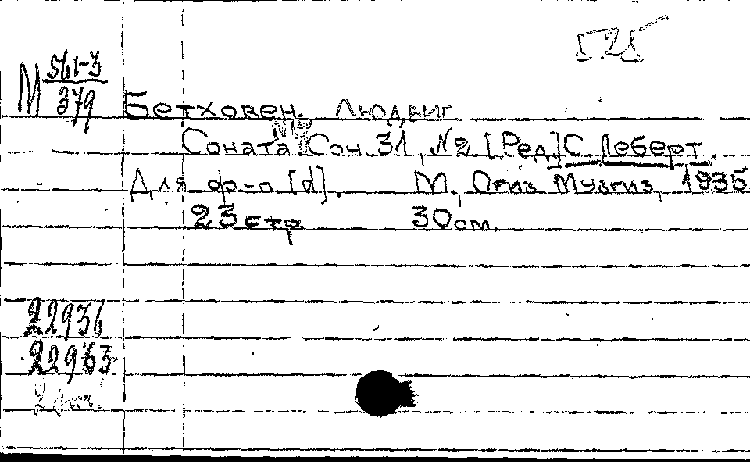 525
М 561-3/379
Бетховен, Людвиг
Соната. Соч. 31, №2 [Ред.] С. Леберт.
Для ф-п [d]. М., Огиз Музгиз, 1935
23 стр 30 см.
22936
22963
2 экз.